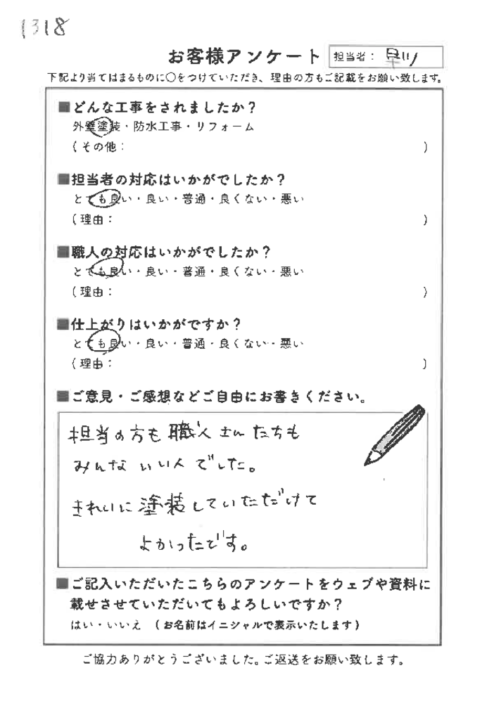 1318
お客様アンケート 担当者： 早川
下記より当てはまるものに○をつけていただき、理由の方もご記載をお願い致します。
■どんな工事をされましたか？
外壁塗装・防水工事・リフォーム
（その他： ）
■担当者の対応はいかがでしたか？
とても良い・良い・普通・良くない・悪い
（理由： ）
■職人の対応はいかがでしたか？
とても良い・良い・普通・良くない・悪い
（理由： ）
■仕上がりはいかがですか？
とても良い・良い・普通・良くない・悪い
（理由： ）
■ご意見・ご感想などご自由にお書きください。
担当の方も職人さんたちも
みんないい人でした。
きれいに塗装していただけて
よかったです。
■ご記入いただいたこちらのアンケートをウェブや資料に
載せさせていただいてもよろしいですか？
はい・いいえ （お名前はイニシャルで表示いたします）
ご協力ありがとうございました。ご返送をお願い致します。